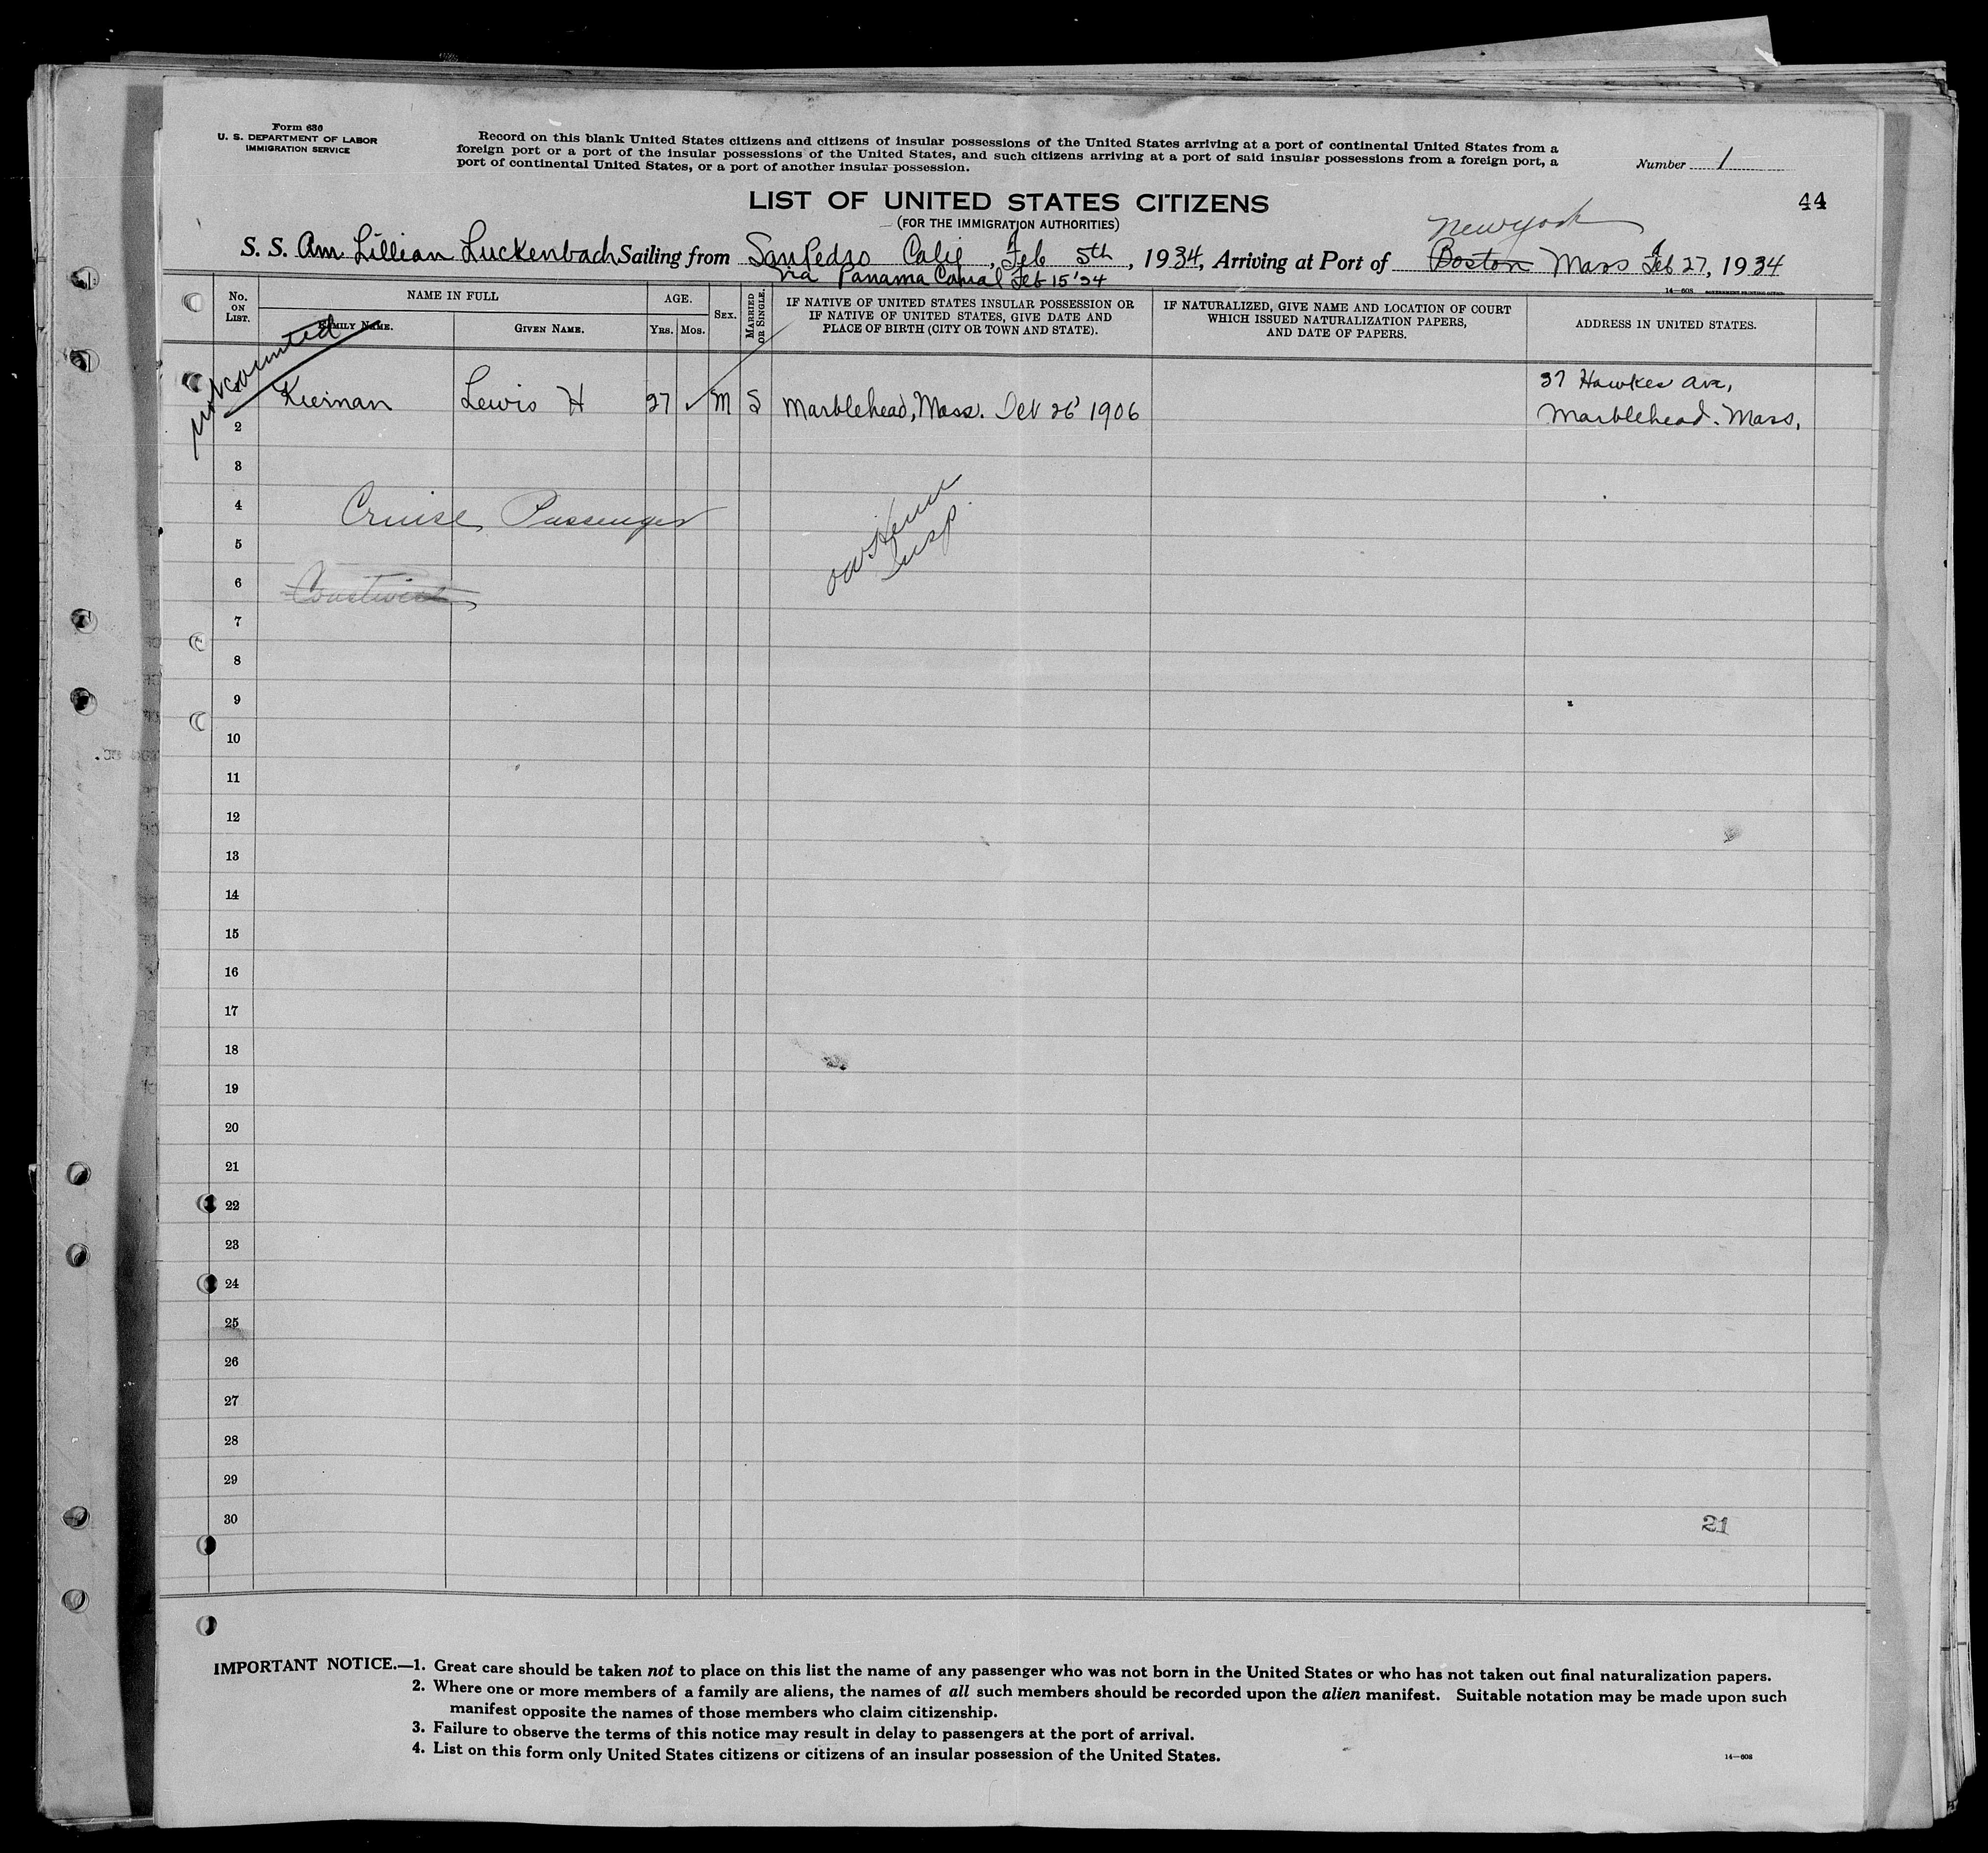 Form 630
U. S. DEPARTMENT OF LABOR
IMMIGRATION SERVICE
Record on this blank United States citizens and citizens of insular possessions of the United States arriving at a port of continental United States from a
foreign port or a port of the insular possessions of the United States, and such citizens arriving at a port of said insular possessions from a foreign port, a
port of continental United States, or a port of another insular possession.
Number 1
LIST OF UNITED STATES CITIZENS
44
(FOR THE IMMIGRATION AUTHORITIES)
New York
S. S. Am Lillian Luckenbach Sailing from San Pedro Calif, Feb 5th, 1934, Arriving at Port of Boston Mass Feb 27, 1934
via Panama Canal Feb 15 '34
14—608 GOVERNMENT PRINTING OFFICE
No. ON LIST.
NAME IN FULL
FAMILY NAME.
GIVEN NAME.
AGE.
YRS. MOS.
SEX.
MARRIED OR SINGLE.
IF NATIVE OF UNITED STATES INSULAR POSSESSION OR
IF NATIVE OF UNITED STATES, GIVE DATE AND
PLACE OF BIRTH (CITY OR TOWN AND STATE).
IF NATURALIZED, GIVE NAME AND LOCATION OF COURT
WHICH ISSUED NATURALIZATION PAPERS,
AND DATE OF PAPERS.
ADDRESS IN UNITED STATES.
not counted
37 Hawkes Ave,
Kiernan Lewis H 27 ✓ M S Marblehead, Mass. 26 1906
Marblehead. Mass,
2
3
4
Cruise Passenger
Insp
5
6
Coastwise
7
8
9
10
11
12
13
14
15
16
17
18
19
20
21
22
23
24
25
26
27
28
29
30
21
IMPORTANT NOTICE.—1. Great care should be taken not to place on this list the name of any passenger who was not born in the United States or who has not taken out final naturalization papers.
2. Where one or more members of a family are aliens, the names of all such members should be recorded upon the alien manifest. Suitable notation may be made upon such
manifest opposite the names of those members who claim citizenship.
3. Failure to observe the terms of this notice may result in delay to passengers at the port of arrival.
4. List on this form only United States citizens or citizens of an insular possession of the United States.
14—608